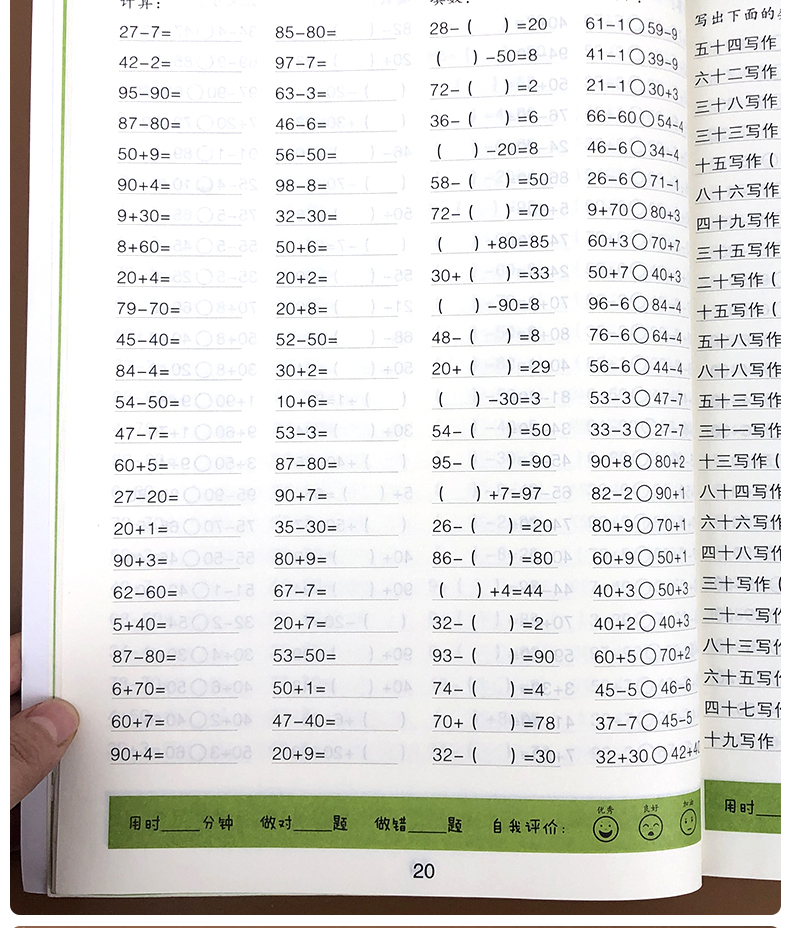 计算:
27-7= 85-80= 28-( )=20 61-1○59-9
42-2= 97-7= ( )-50=8 41-1○39-9
95-90= 63-3= 72-( )=2 21-1○30+3
87-80= 46-6= 36-( )=6 66-60○54-4
50+9= 56-50= ( )-20=8 46-6○34-4
90+4= 98-8= 58-( )=50 26-6○71-1
9+30= 32-30= 72-( )=70 9+70○80+3
8+60= 50+6= ( )+80=85 60+3○70+7
20+4= 20+2= 30+( )=33 50+7○40+3
79-70= 20+8= ( )-90=8 96-6○84-4
45-40= 52-50= 48-( )=8 76-6○64-4
84-4= 30+2= 20+( )=29 56-6○44-4
54-50= 10+6= ( )-30=3 53-3○47-7
47-7= 53-3= 54-( )=50 33-3○27-7
60+5= 87-80= 95-( )=90 90+8○80+2
27-20= 90+7= ( )+7=97 82-2○90+1
20+1= 35-30= 26-( )=20 80+9○70+1
90+3= 80+9= 86-( )=80 60+9○50+1
62-60= 67-7= ( )+4=44 40+3○50+3
5+40= 20+7= 32-( )=2 40+2○40+3
87-80= 53-50= 93-( )=90 60+5○70+2
6+70= 50+1= 74-( )=4 45-5○46-6
60+7= 47-40= 70+( )=78 37-7○45-5
90+4= 20+9= 32-( )=30 32+30○42+40
用时____分钟 做对____题 做错____题 自我评价: 优秀 良好 加油
20
写出下面的
五十四写作
六十二写作
三十八写作
三十三写作
十五写作(
八十六写作
四十九写作
三十五写作
二十写作(
十五写作(
五十八写作
八十八写作
五十三写作
三十一写作
十三写作(
八十四写作
六十六写作
四十八写作
三十写作(
二十一写作
八十三写作
六十五写作
四十七写作
十九写作
用时____